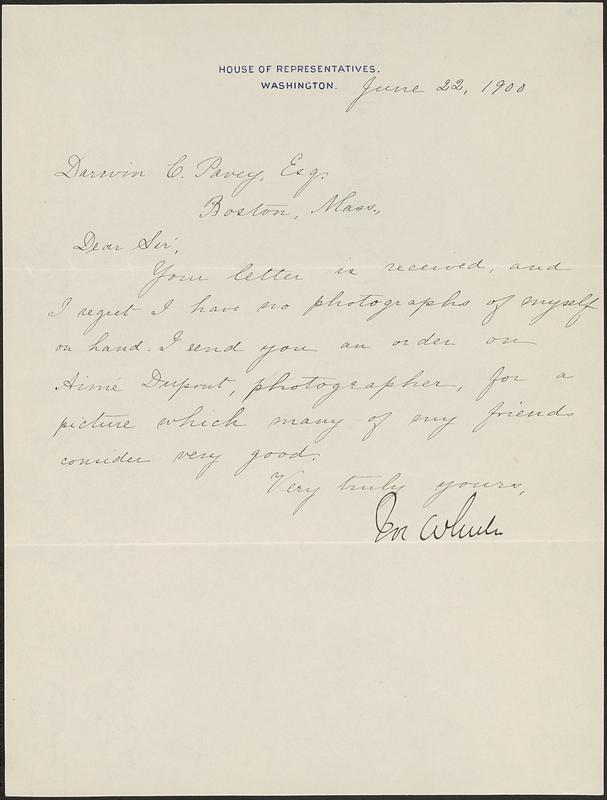 HOUSE OF REPRESENTATIVES,
WASHINGTON.
June 22, 1900
Darwin C. Pavey, Esq.
Boston, Mass.,
Dear Sir,
Your letter is received, and
I regret I have no photographs of myself
on hand. I send you an order on
Aimé Dupont, photographer, for a
picture which many of my friends
consider very good.
Very truly yours,
Jos Wheeler